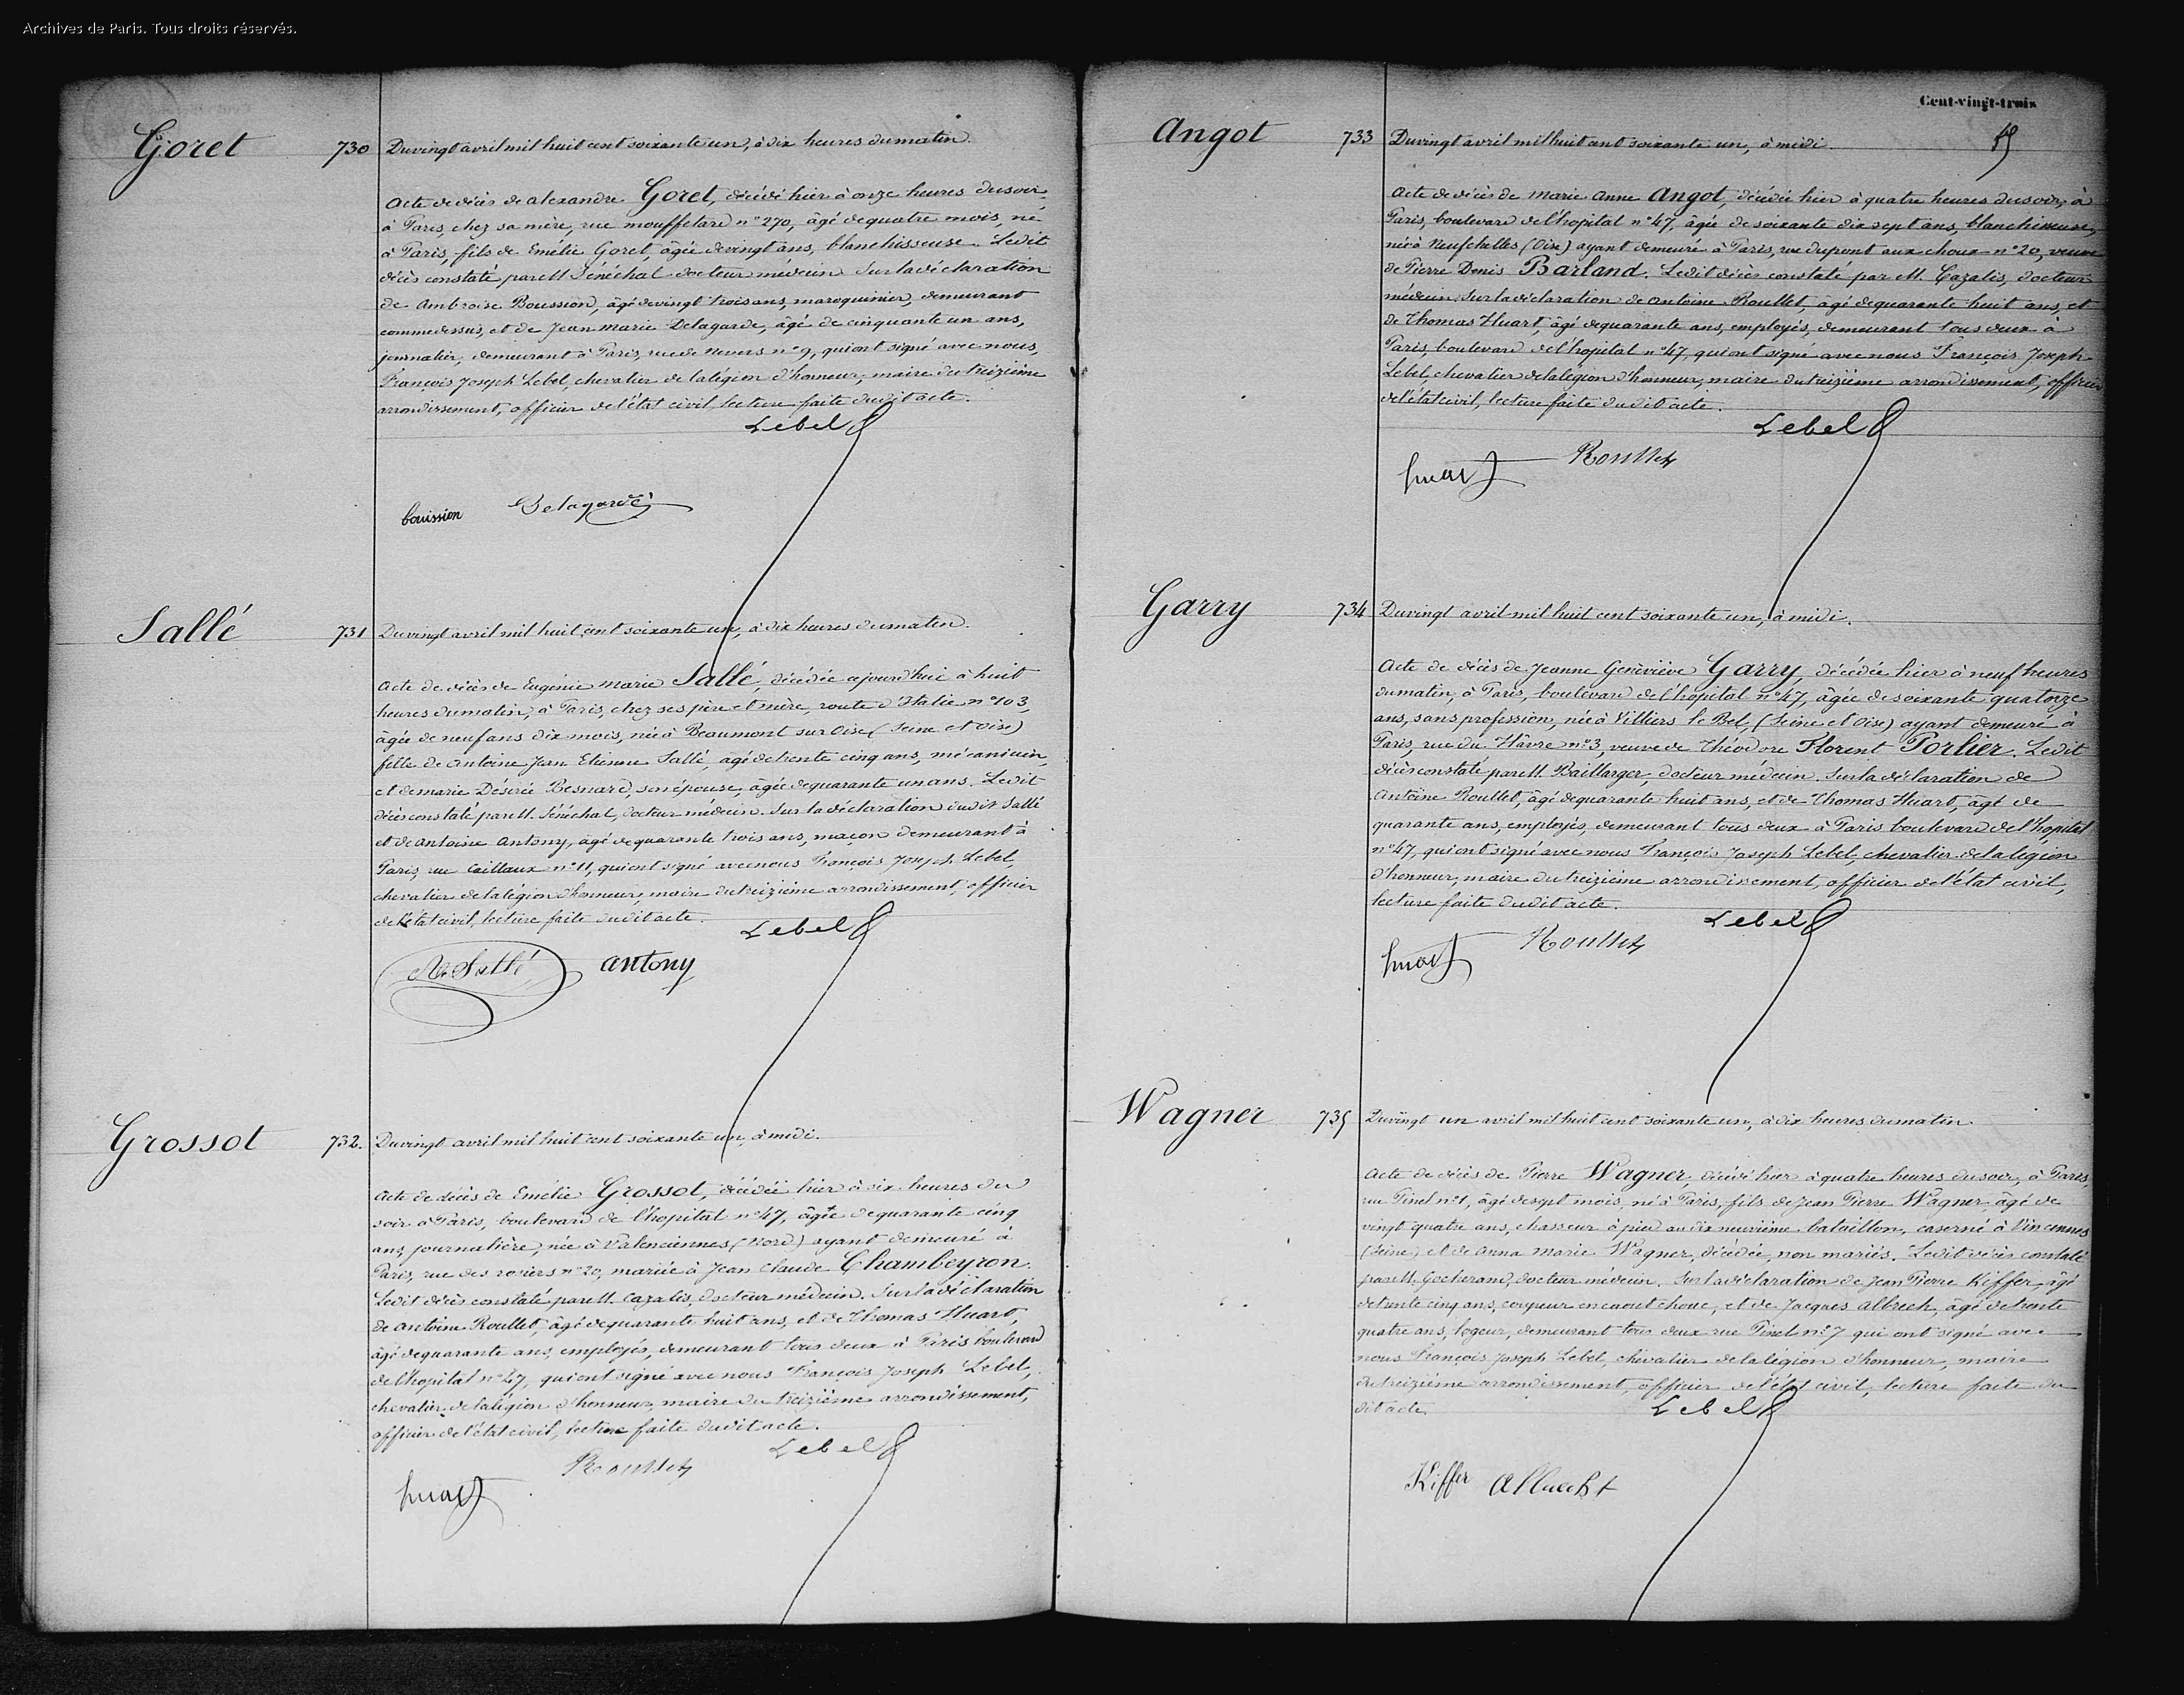 Archives de Paris. Tous droits réservés.
Goret
730
Du vingt avril mil huit cent soixante un, à dix heures du matin.
Acte de décès de Alexandre Goret, décédé hier à onze heures du soir
à Paris, chez sa mère, rue mouffetard n° 270, âgé de quatre mois, né
à Paris, fils de Emélie Goret, âgée de vingt ans, blanchisseuse. Ledit
décès constaté par M Sénéchal docteur médecin. Sur la déclaration
de Ambroise Boussion, âgé de vingt trois ans, maroquinier, demeurant
comme dessus, et de Jean marie Delagarde, âgé de cinquante un ans,
journalier, demeurant à Paris, rue de Nevers n° 9, qui ont signé avec nous,
François Joseph Lebel, chevalier de la légion d'honneur, maire du treizième
arrondissement, officier de l'état civil, lecture faite dudit acte.
Lebel
bouission Delagarde
Sallé
731
Du vingt avril mil huit cent soixante un, à dix heures du matin.
Acte de décès de Eugénie marie Sallé, décédée aujourd'hui à huit
heures du matin, à Paris, chez ses père et mère, route d'Italie n° 103,
âgée de neuf ans dix mois, née à Beaumont sur Oise (Seine et Oise)
fille de Antoine Jean Etienne Sallé, âgé de trente cinq ans, mécanicien,
et de marie Désirée Besnard, son épouse, âgée de quarante un ans. Ledit
décès constaté par M. Sénéchal, docteur médecin. Sur la déclaration dudit Sallé
et de Antoine Antony, âgé de quarante trois ans, maçon demeurant à
Paris, rue Caillaux n° 11, qui ont signé avec nous François Joseph Lebel,
chevalier de la légion d'honneur, maire du treizième arrondissement, officier
de l'état civil, lecture faite dudit acte.
Lebel
Sallé antony
Grossot
732.
Du vingt avril mil huit cent soixante un, à midi.
Acte de décès de Emélie Grossot, décédée hier à six heures du
soir à Paris, boulevard de l'hopital n° 47, âgée de quarante cinq
ans, journalière, née à Valenciennes (Nord) ayant demeuré à
Paris, rue des rosiers n° 20, mariée à Jean Claude Chambeyron.
Ledit décès constaté par M. Cazalis, docteur médecin. Sur la déclaration
de Antoine Roullet, âgé de quarante huit ans, et de Thomas Huart,
âgé de quarante ans, employés, demeurant tous deux à Paris boulevard
de l'hopital n° 47, qui ont signé avec nous François Joseph Lebel,
chevalier de la légion d'honneur, maire du treizième arrondissement,
officier de l'état civil, lecture faite dudit acte.
Lebel
Roullet
huart
Cent-vingt-trois
Angot
733
Du vingt avril mil huit cent soixante un, à midi.
Acte de décès de Marie Anne Angot, décédée hier à quatre heures du soir, à
Paris, boulevard de l'hopital n° 47, âgée de soixante dix sept ans, blanchisseuse,
née à Neufchelles (Oise) ayant demeuré à Paris, rue du pont aux choux n° 20, veuve
de Pierre Denis Barland. Ledit décès constaté par M. Cazalis, docteur
médecin. Sur la déclaration de Antoine Roullet, âgé de quarante huit ans, et
de Thomas Huart, âgé de quarante ans, employés, demeurant tous deux à
Paris, boulevard de l'hopital n° 47, qui ont signé avec nous François Joseph
Lebel, chevalier de la légion d'honneur, maire du treizième arrondissement, officier
de l'état civil, lecture faite dudit acte.
Lebel
Roullet
huart
Garry
734
Du vingt avril mil huit cent soixante un, à midi.
Acte de décès de Jeanne Geneviève Garry, décédée hier à neuf heures
du matin, à Paris, boulevard de l'hopital n° 47, âgée de soixante quatorze
ans, sans profession, née à Villiers le Bel, (Seine et Oise) ayant demeuré à
Paris, rue du Hâvre n° 3, veuve de Théodore Florent Porlier. Ledit
décès constaté par M. Baillarger, docteur médecin. Sur la déclaration de
Antoine Roullet, âgé de quarante huit ans, et de Thomas Huart, âgé de
quarante ans, employés, demeurant tous deux à Paris boulevard de l'hopital
n° 47, qui ont signé avec nous François Joseph Lebel, chevalier de la légion
d'honneur, maire du treizième arrondissement, officier de l'état civil,
lecture faite dudit acte.
Lebel
Roullet
huart
Wagner
735
Du vingt un avril mil huit cent soixante un, à dix heures du matin.
Acte de décès de Pierre Wagner, décédé hier à quatre heures du soir, à Paris,
rue Pinel n° 1, âgé de sept mois, né à Paris, fils de Jean Pierre Wagner, âgé de
vingt quatre ans, chasseur à pied au dix neuvième bataillon, caserné à Vincennes
(Seine) et de Anna Marie Wagner, décédée, non mariés. Ledit décès constaté
par M. Gocherand, docteur médecin. Sur la déclaration de Jean Pierre Kiffer, âgé
de trente cinq ans, coupeur en caoutchouc, et de Jacques Albrech, âgé de trente
quatre ans, logeur, demeurant tous deux rue Pinel n° 7 qui ont signé avec
nous François Joseph Lebel, chevalier de la légion d'honneur, maire
du treizième arrondissement, officier de l'état civil, lecture faite du
dit acte.
Lebel
Kiffer Albrecht